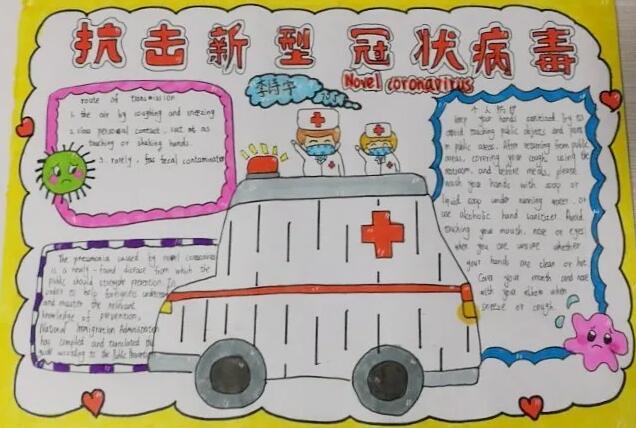 抗击新型冠状病毒
Novel coronavirus
route of transmission
1. the air by coughing and sneezing
2. close personal contact, such as
touching or shaking hands.
3. rarely, fecal contamination
The pneumonia caused by novel coronavirus
is a newly-found disease from which the
public should strengthen prevention. In
order to help foreigners understand
and master the relevant
knowledge of prevention,
National Immigration Administration
has compiled and translated the
according to the Public Prevention
个人防护
keep your hands sanitized. Try to
avoid touching public objects and parts
in public areas. After returning from public
areas, covering your cough, using the
restroom, and before meals, please
wash your hands with soap or
liquid soap under running water, or
use alcoholic hand sanitizer. Avoid
touching your mouth, nose or eyes
when you are unsure whether
your hands are clean or not
Cover your mouth and nose
with your elbow when
sneeze or cough.